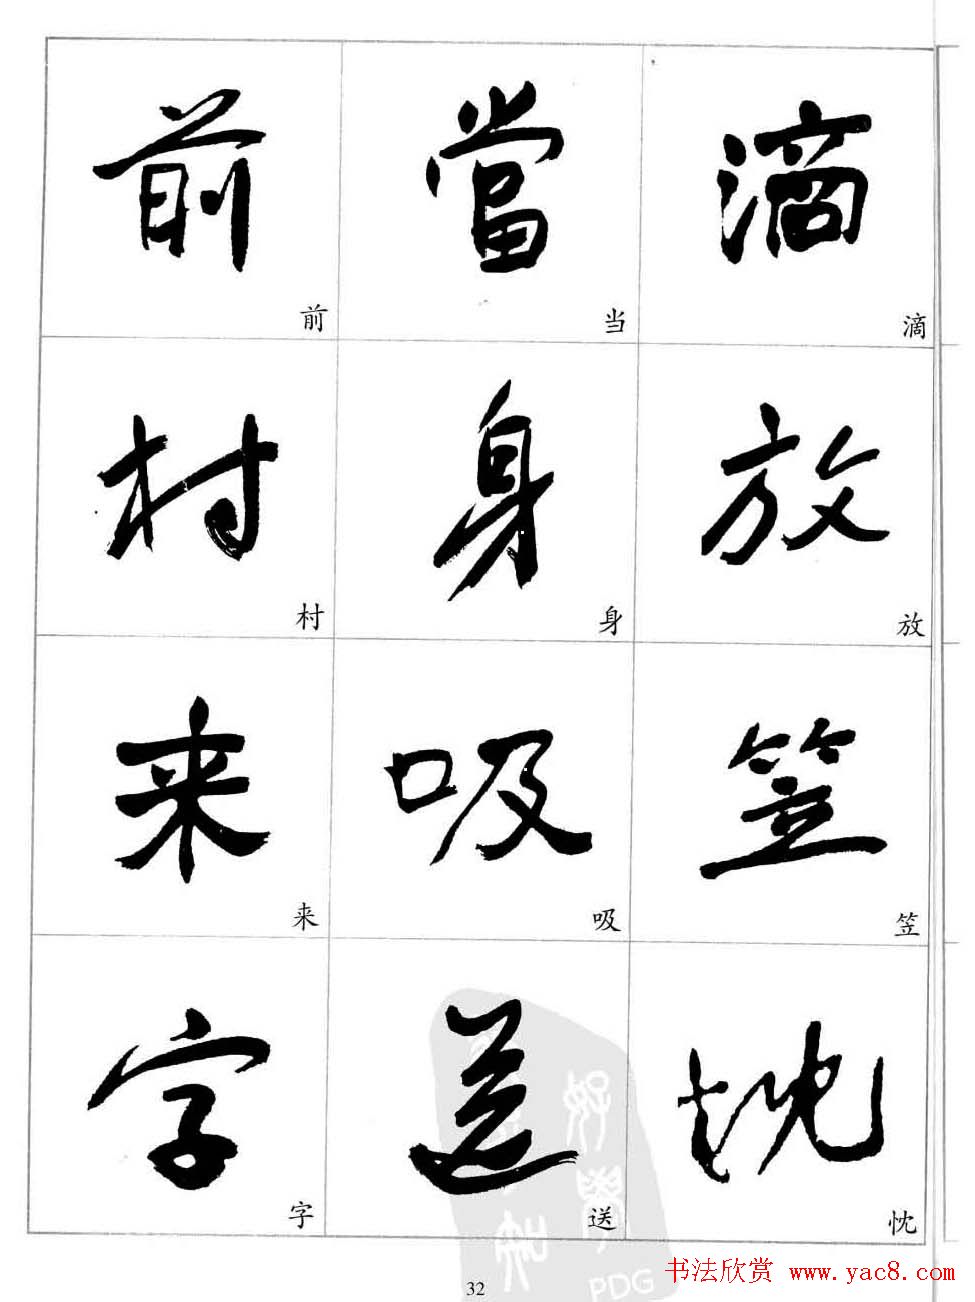 前 當 滴
前 当 滴
村 身 放
村 身 放
来 吸 笠
来 吸 笠
字 送 忱
字 送 忱
好學
PDG
32
书法欣赏 www.yac8.com